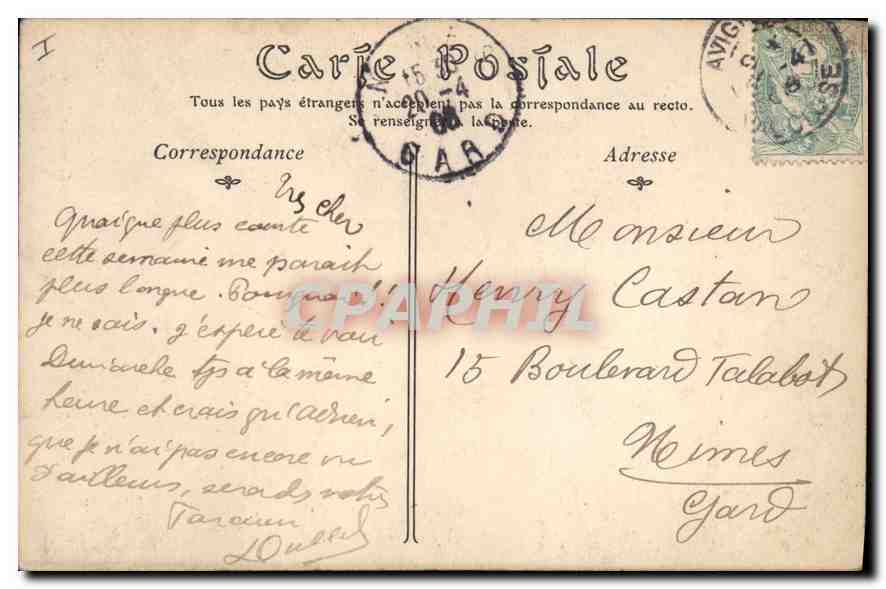 I
Carte Postale
Tous les pays étrangers n'acceptent pas la correspondance au recto.
Se renseigner à la poste.
Correspondance
Adresse
15
20-4
GARD
AVIGNON
VAUCLUSE
Très cher
Quoique plus courte
cette semaine me parait
plus longue. Pourquoi!!
je ne sais. J'espère te voir
Dimanche tjs à la même
heure et crois qu'Adrien,
que je n'ai pas encore vu
d'ailleurs, sera des notres
Monsieur
Henry Castan
15 Boulevard Talabot
Nimes
Gard
CPAPHIL